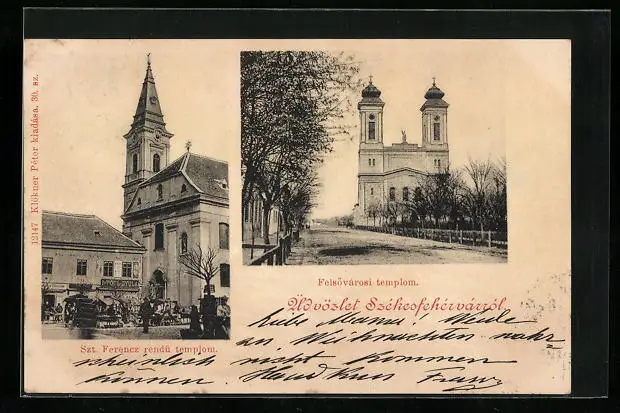 12147 Klökner Péter kiadása. 30. sz.
Felsővárosi templom.
Szt. Ferencz rendű templom.
Üdvözlet Székesfehérvárról
Liebe Mama! Werde
an Weihnachten wahr-
scheinlich nicht kommen
können. Handkuss Franz